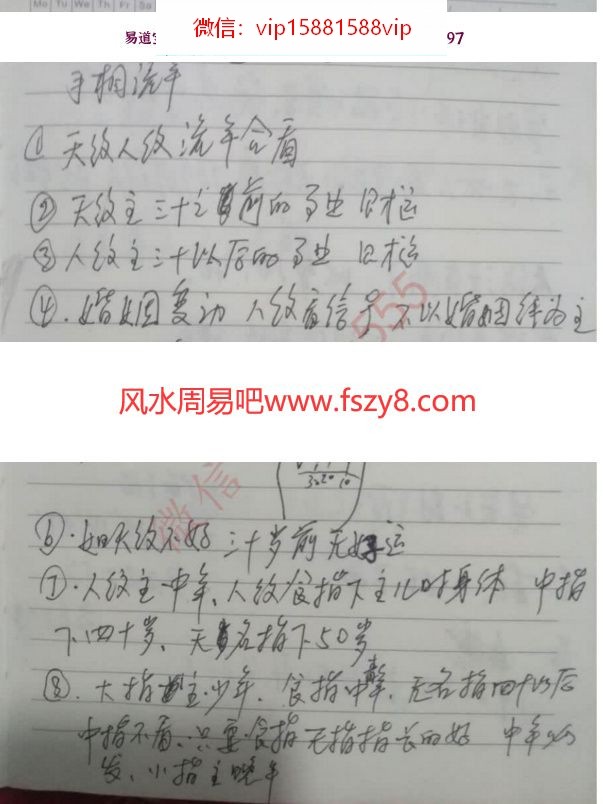 Mo Tu We Th Fr Sa
易道
微信：vip15881588vip
97
手相流年
① 天纹人纹流年合看
② 天纹主三十岁前的事业财运
③ 人纹主三十以后的事业财运
④.婚姻变动 人纹看信号 不以婚姻纬为主
555
风水周易吧www.fszy8.com
微信
30 20 10
⑥.如天纹不好 三十岁前无好运
⑦.人纹主中年、人纹食指下主儿时身体 中指
下四十岁、无名指下50岁
⑧.大指主少年.食指中年.无名指四十以后
中指不看.只要食指无指指长的好 中年必
发、小指主晚年